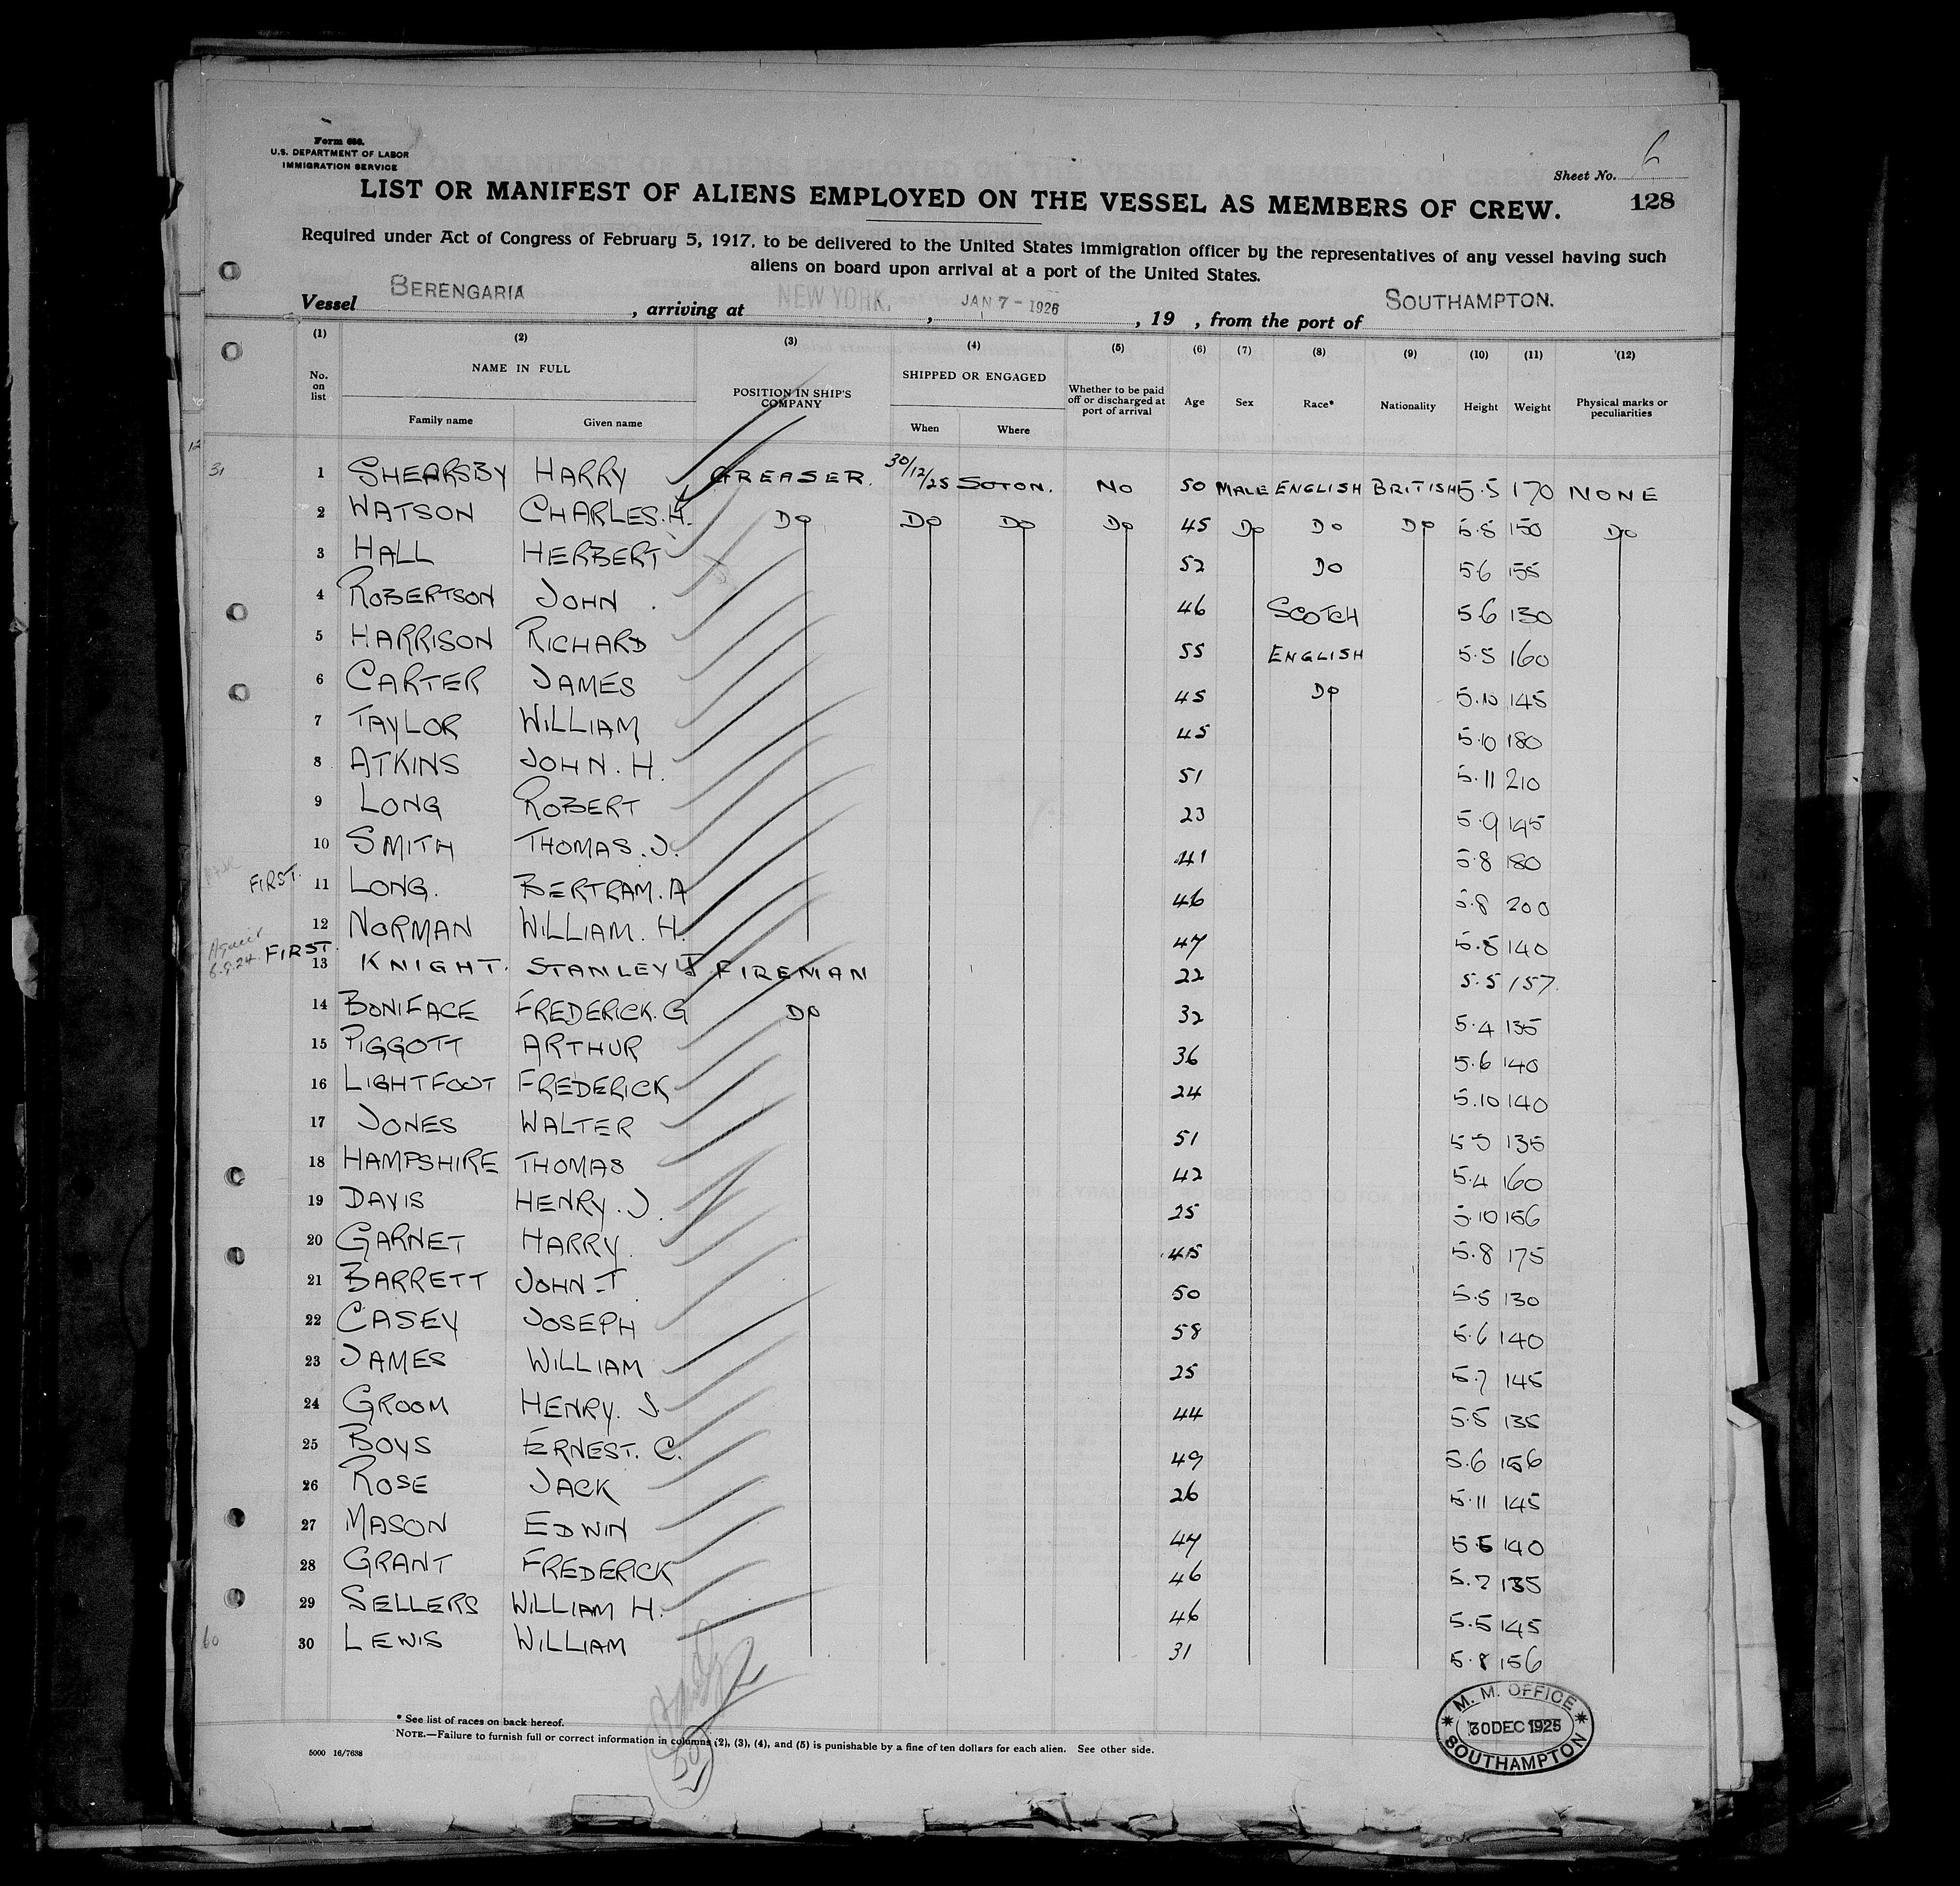 Form 680.
U.S. DEPARTMENT OF LABOR
IMMIGRATION SERVICE
Sheet No. 6
128
LIST OR MANIFEST OF ALIENS EMPLOYED ON THE VESSEL AS MEMBERS OF CREW.
Required under Act of Congress of February 5, 1917, to be delivered to the United States immigration officer by the representatives of any vessel having such
aliens on board upon arrival at a port of the United States.
Vessel BERENGARIA, arriving at NEW YORK, JAN 7 - 1926, 19 , from the port of SOUTHAMPTON.
(1) (2) (3) (4) (5) (6) (7) (8) (9) (10) (11) (12)
No. on list NAME IN FULL Family name Given name POSITION IN SHIP'S COMPANY SHIPPED OR ENGAGED When Where Whether to be paid off or discharged at port of arrival Age Sex Race* Nationality Height Weight Physical marks or peculiarities
12
31 1 SHEARSBY HARRY GREASER. 30/12/25 SOTON. NO 50 MALE ENGLISH BRITISH 5.5 170 NONE
2 WATSON CHARLES.H. DO DO DO DO 45 DO DO DO 5.8 150 DO
3 HALL HERBERT 52 DO 5.6 155
4 ROBERTSON JOHN. 46 SCOTCH 5.6 130
5 HARRISON RICHARD 55 ENGLISH 5.5 160
6 CARTER JAMES 45 DO 5.10 145
7 TAYLOR WILLIAM 45 5.10 180
8 ATKINS JOHN.H. 51 5.11 210
9 LONG ROBERT 23 5.9 145
10 SMITH THOMAS.J. 41 5.8 180
FIRST. 11 LONG. BERTRAM.A 46 5.8 200
12 NORMAN WILLIAM.H. 47 5.8 140
6.9.24. FIRST. 13 KNIGHT. STANLEY J FIREMAN 22 5.5 157.
14 BONIFACE FREDERICK.G DO 32 5.4 135
15 PIGGOTT ARTHUR 36 5.6 140
16 LIGHTFOOT FREDERICK 24 5.10 140
17 JONES WALTER 51 5.5 135
18 HAMPSHIRE THOMAS 42 5.4 160
19 DAVIS HENRY.J. 25 5.10 156
20 GARNET HARRY. 45 5.8 175
21 BARRETT JOHN T 50 5.5 130
22 CASEY JOSEPH 58 5.6 140
23 JAMES WILLIAM 25 5.7 145
24 GROOM HENRY. J 44 5.5 135
25 BOYS ERNEST. C. 49 5.6 156
26 ROSE JACK 26 5.11 145
27 MASON EDWIN 47 5.5 140
28 GRANT FREDERICK 46 5.7 135
29 SELLERS WILLIAM H. 46 5.5 145
60 30 LEWIS WILLIAM 31 5.8 156
* See list of races on back hereof.
NOTE.—Failure to furnish full or correct information in columns (2), (3), (4), and (5) is punishable by a fine of ten dollars for each alien. See other side.
5000 16/7638
M. M. OFFICE
30 DEC 1925
SOUTHAMPTON